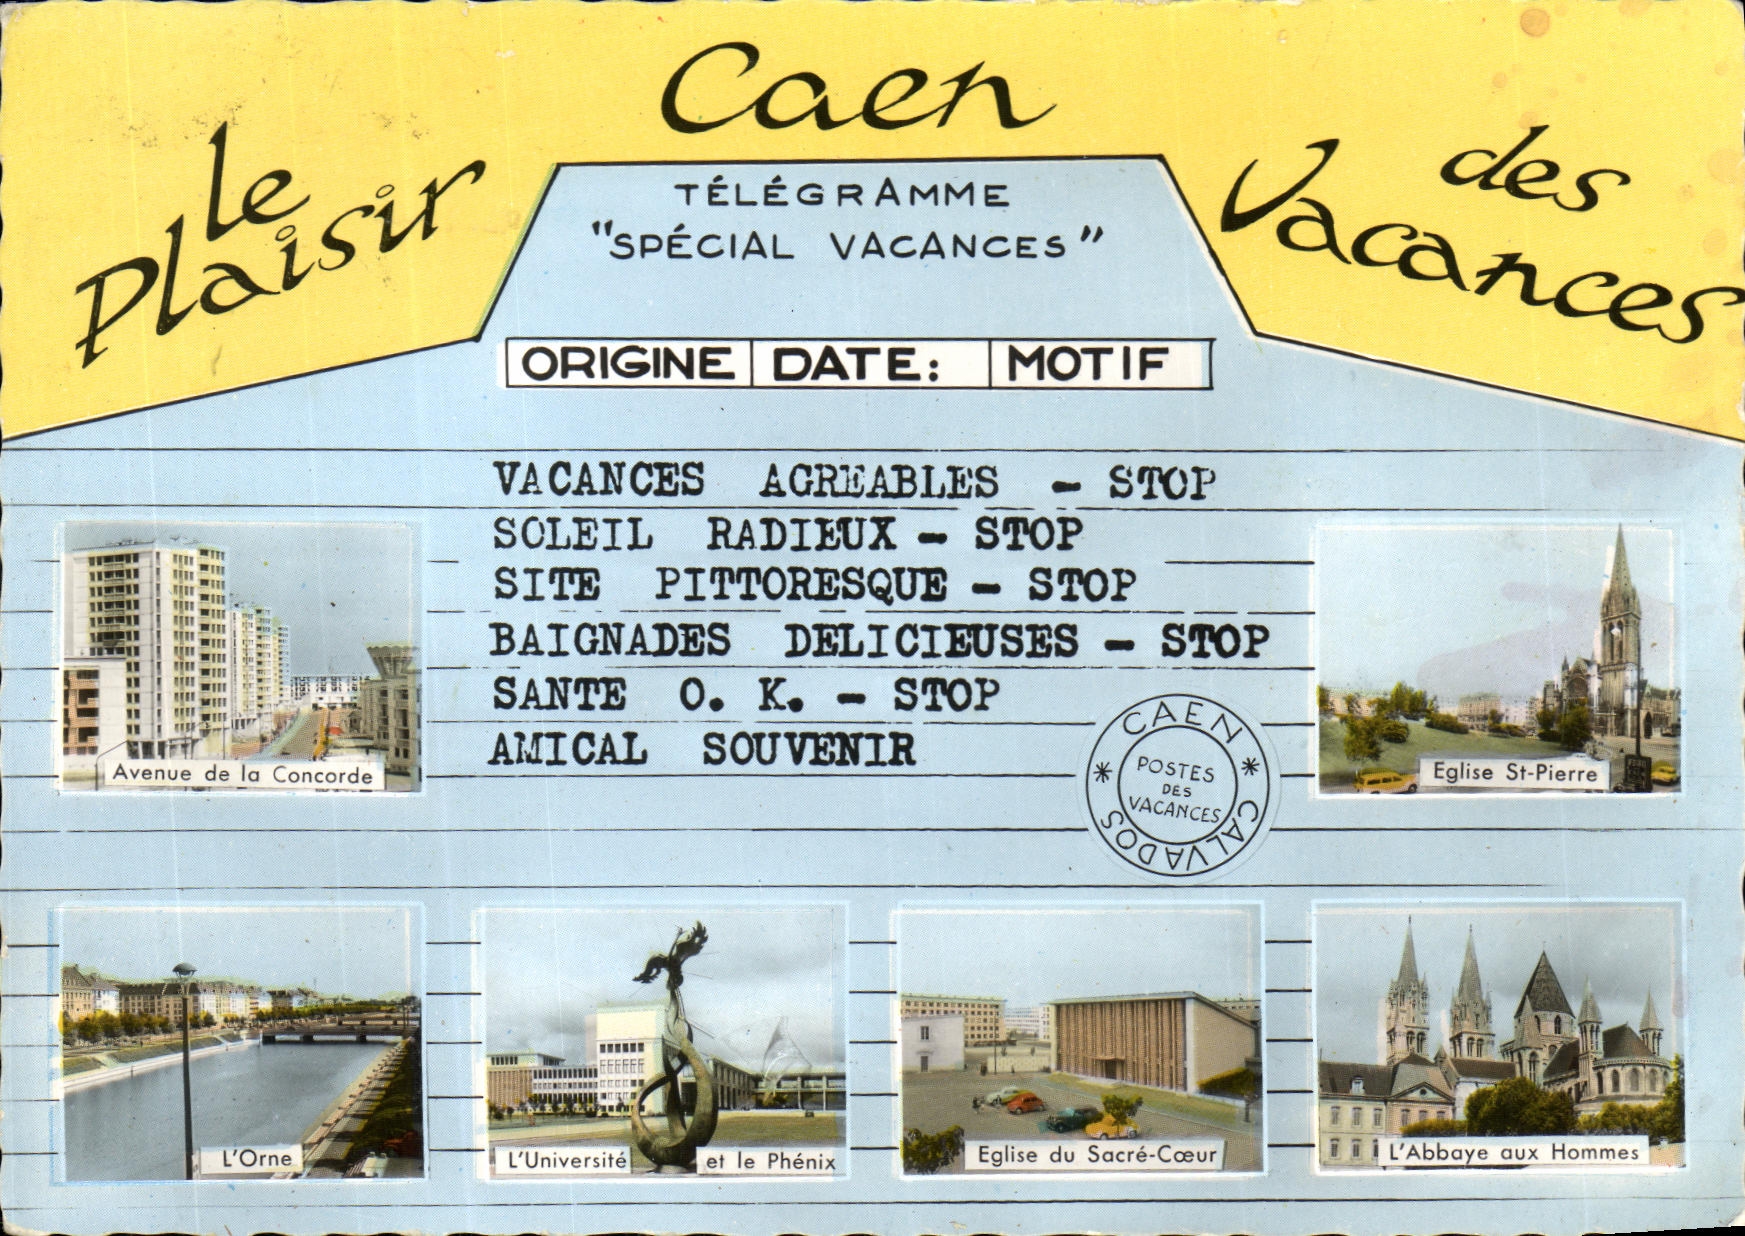 Caen
le
Plaisir
des
Vacances
TÉLÉGRAMME
"SPÉCIAL VACANCES"
ORIGINE DATE: MOTIF
VACANCES AGREABLES - STOP
SOLEIL RADIEUX - STOP
SITE PITTORESQUE - STOP
BAIGNADES DELICIEUSES - STOP
SANTE O. K. - STOP
AMICAL SOUVENIR
CAEN
* POSTES *
DES
VACANCES
CALVADOS
Avenue de la Concorde
Eglise St-Pierre
L'Orne
L'Université et le Phénix
Eglise du Sacré-Cœur
L'Abbaye aux Hommes